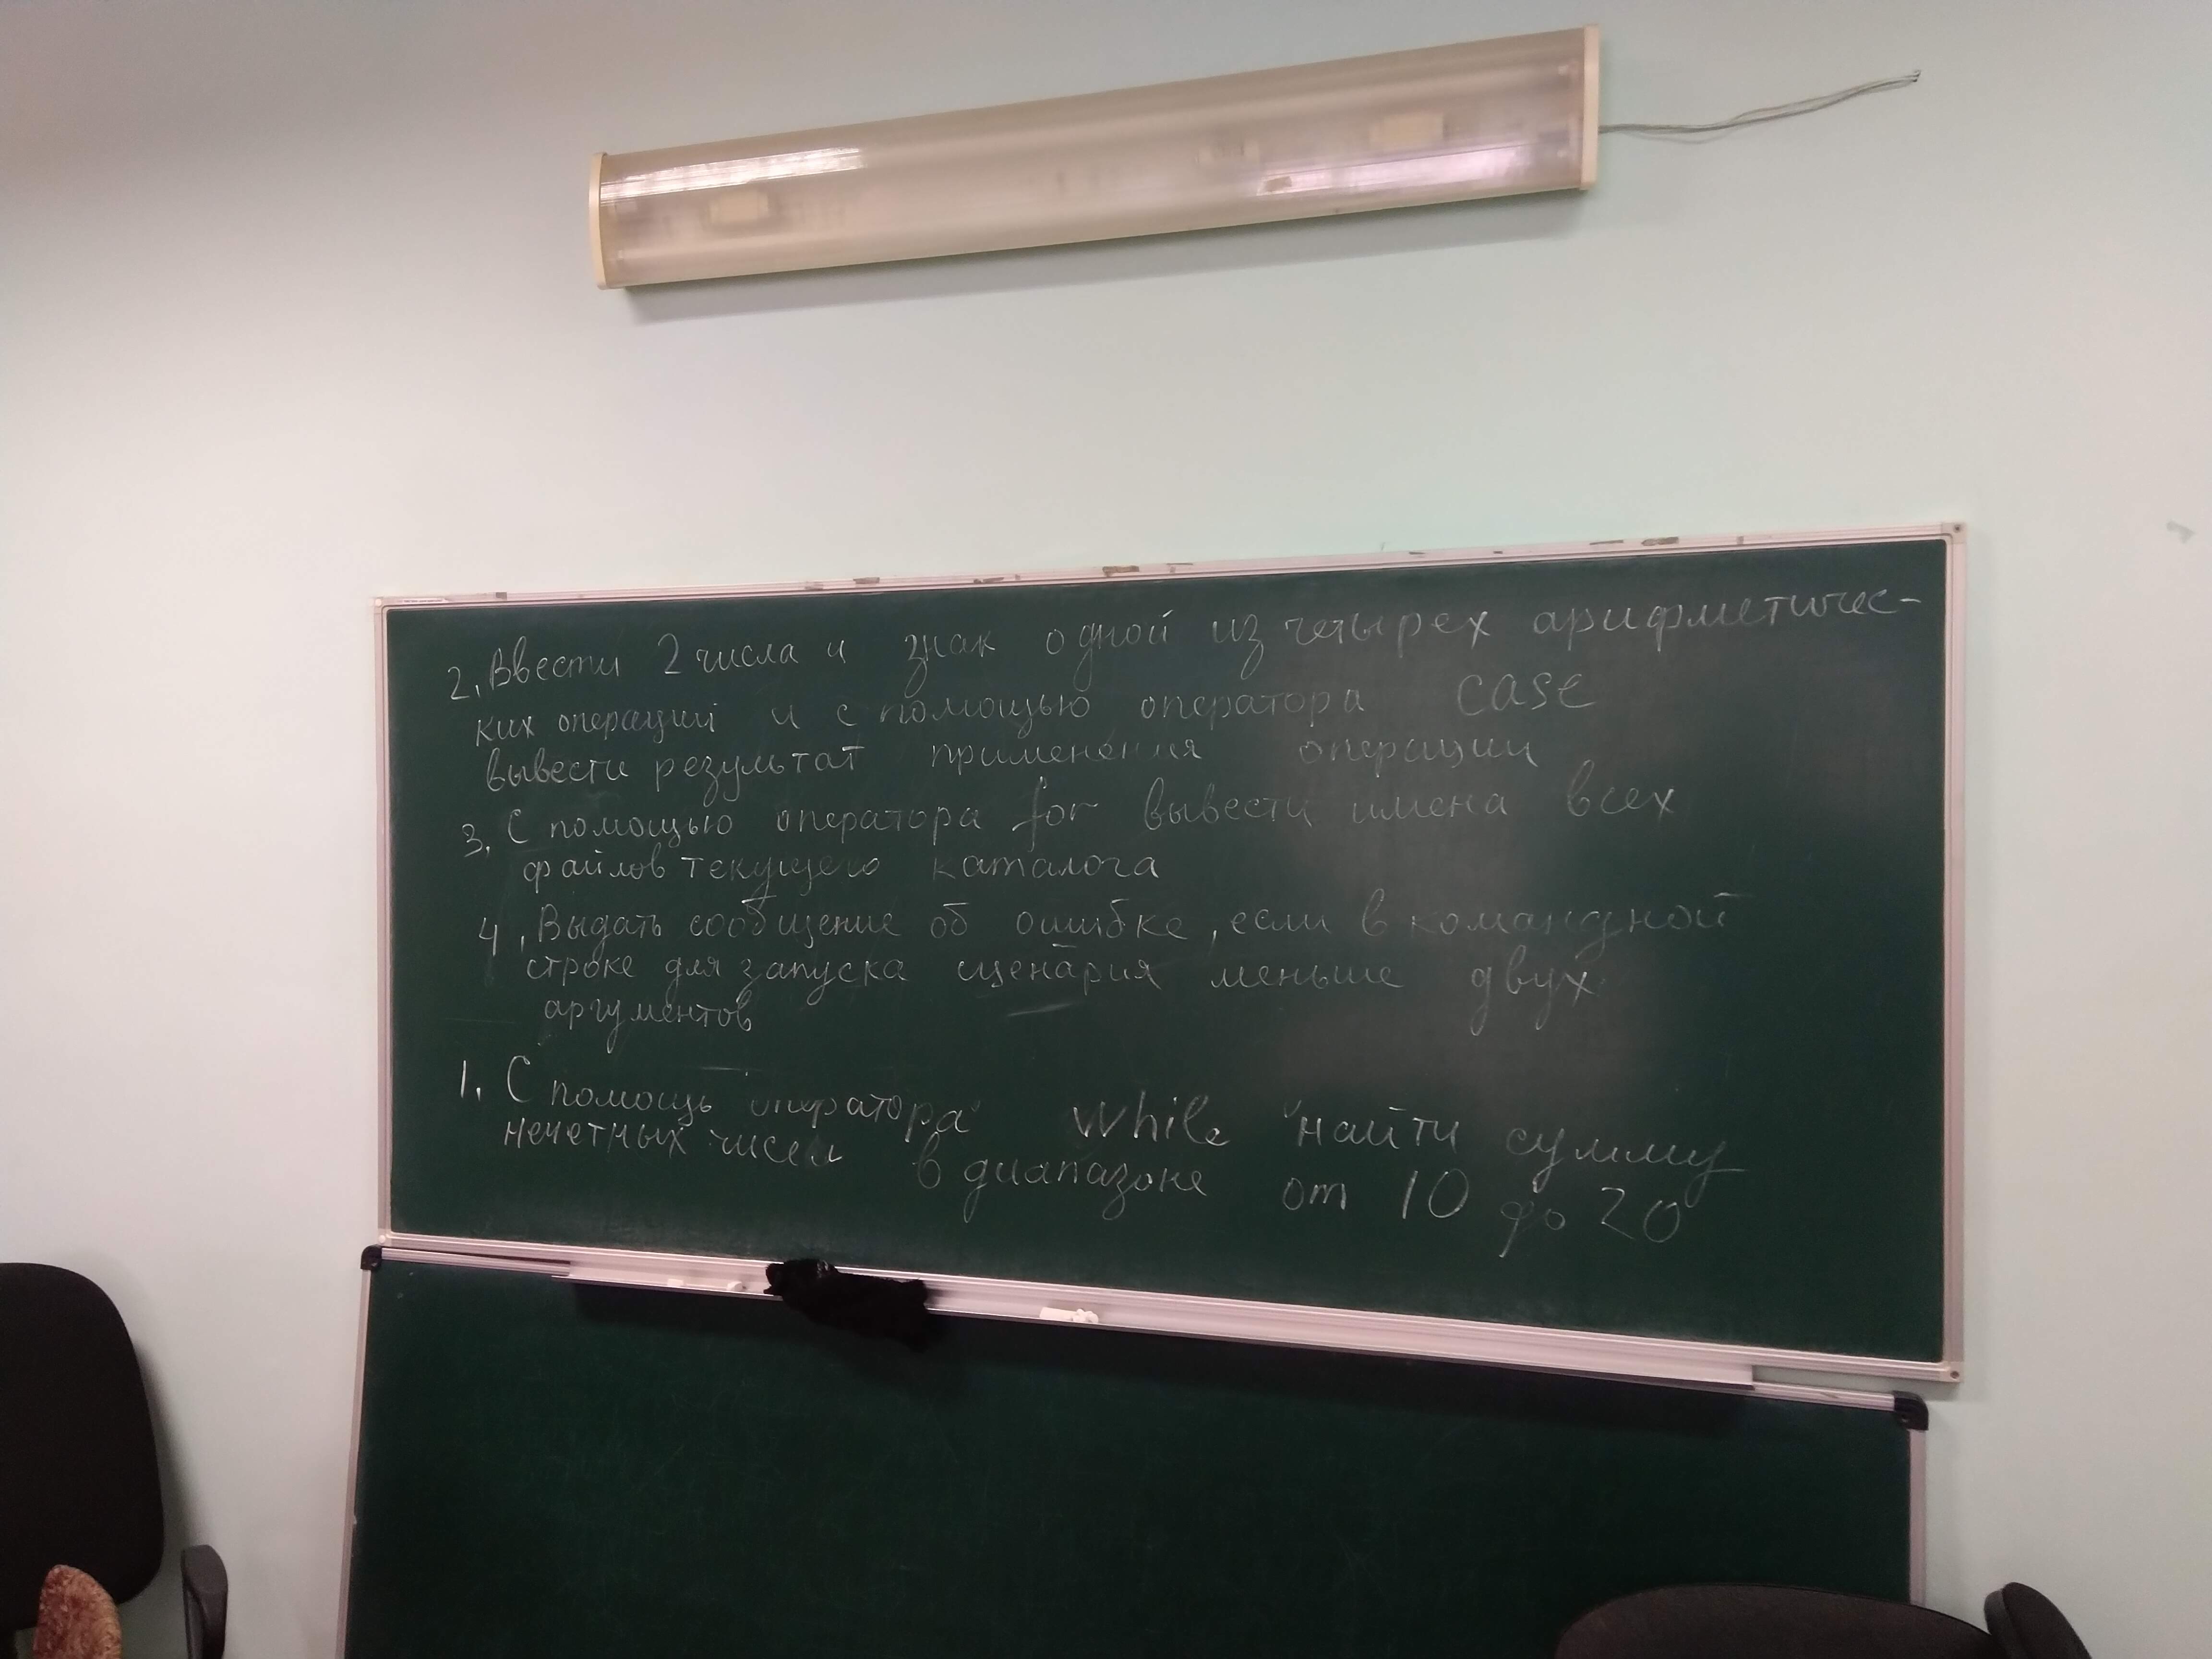 2. Ввести 2 числа и знак одной из четырех арифметичес-
ких операций и с помощью оператора case
вывести результат применения операции
3. С помощью оператора for вывести имена всех
файлов текущего каталога
4. Выдать сообщение об ошибке, если в командной
строке для запуска сценария меньше двух
аргументов
1. С помощь оператора while найти сумму
нечетных чисел в диапазоне от 10 до 20